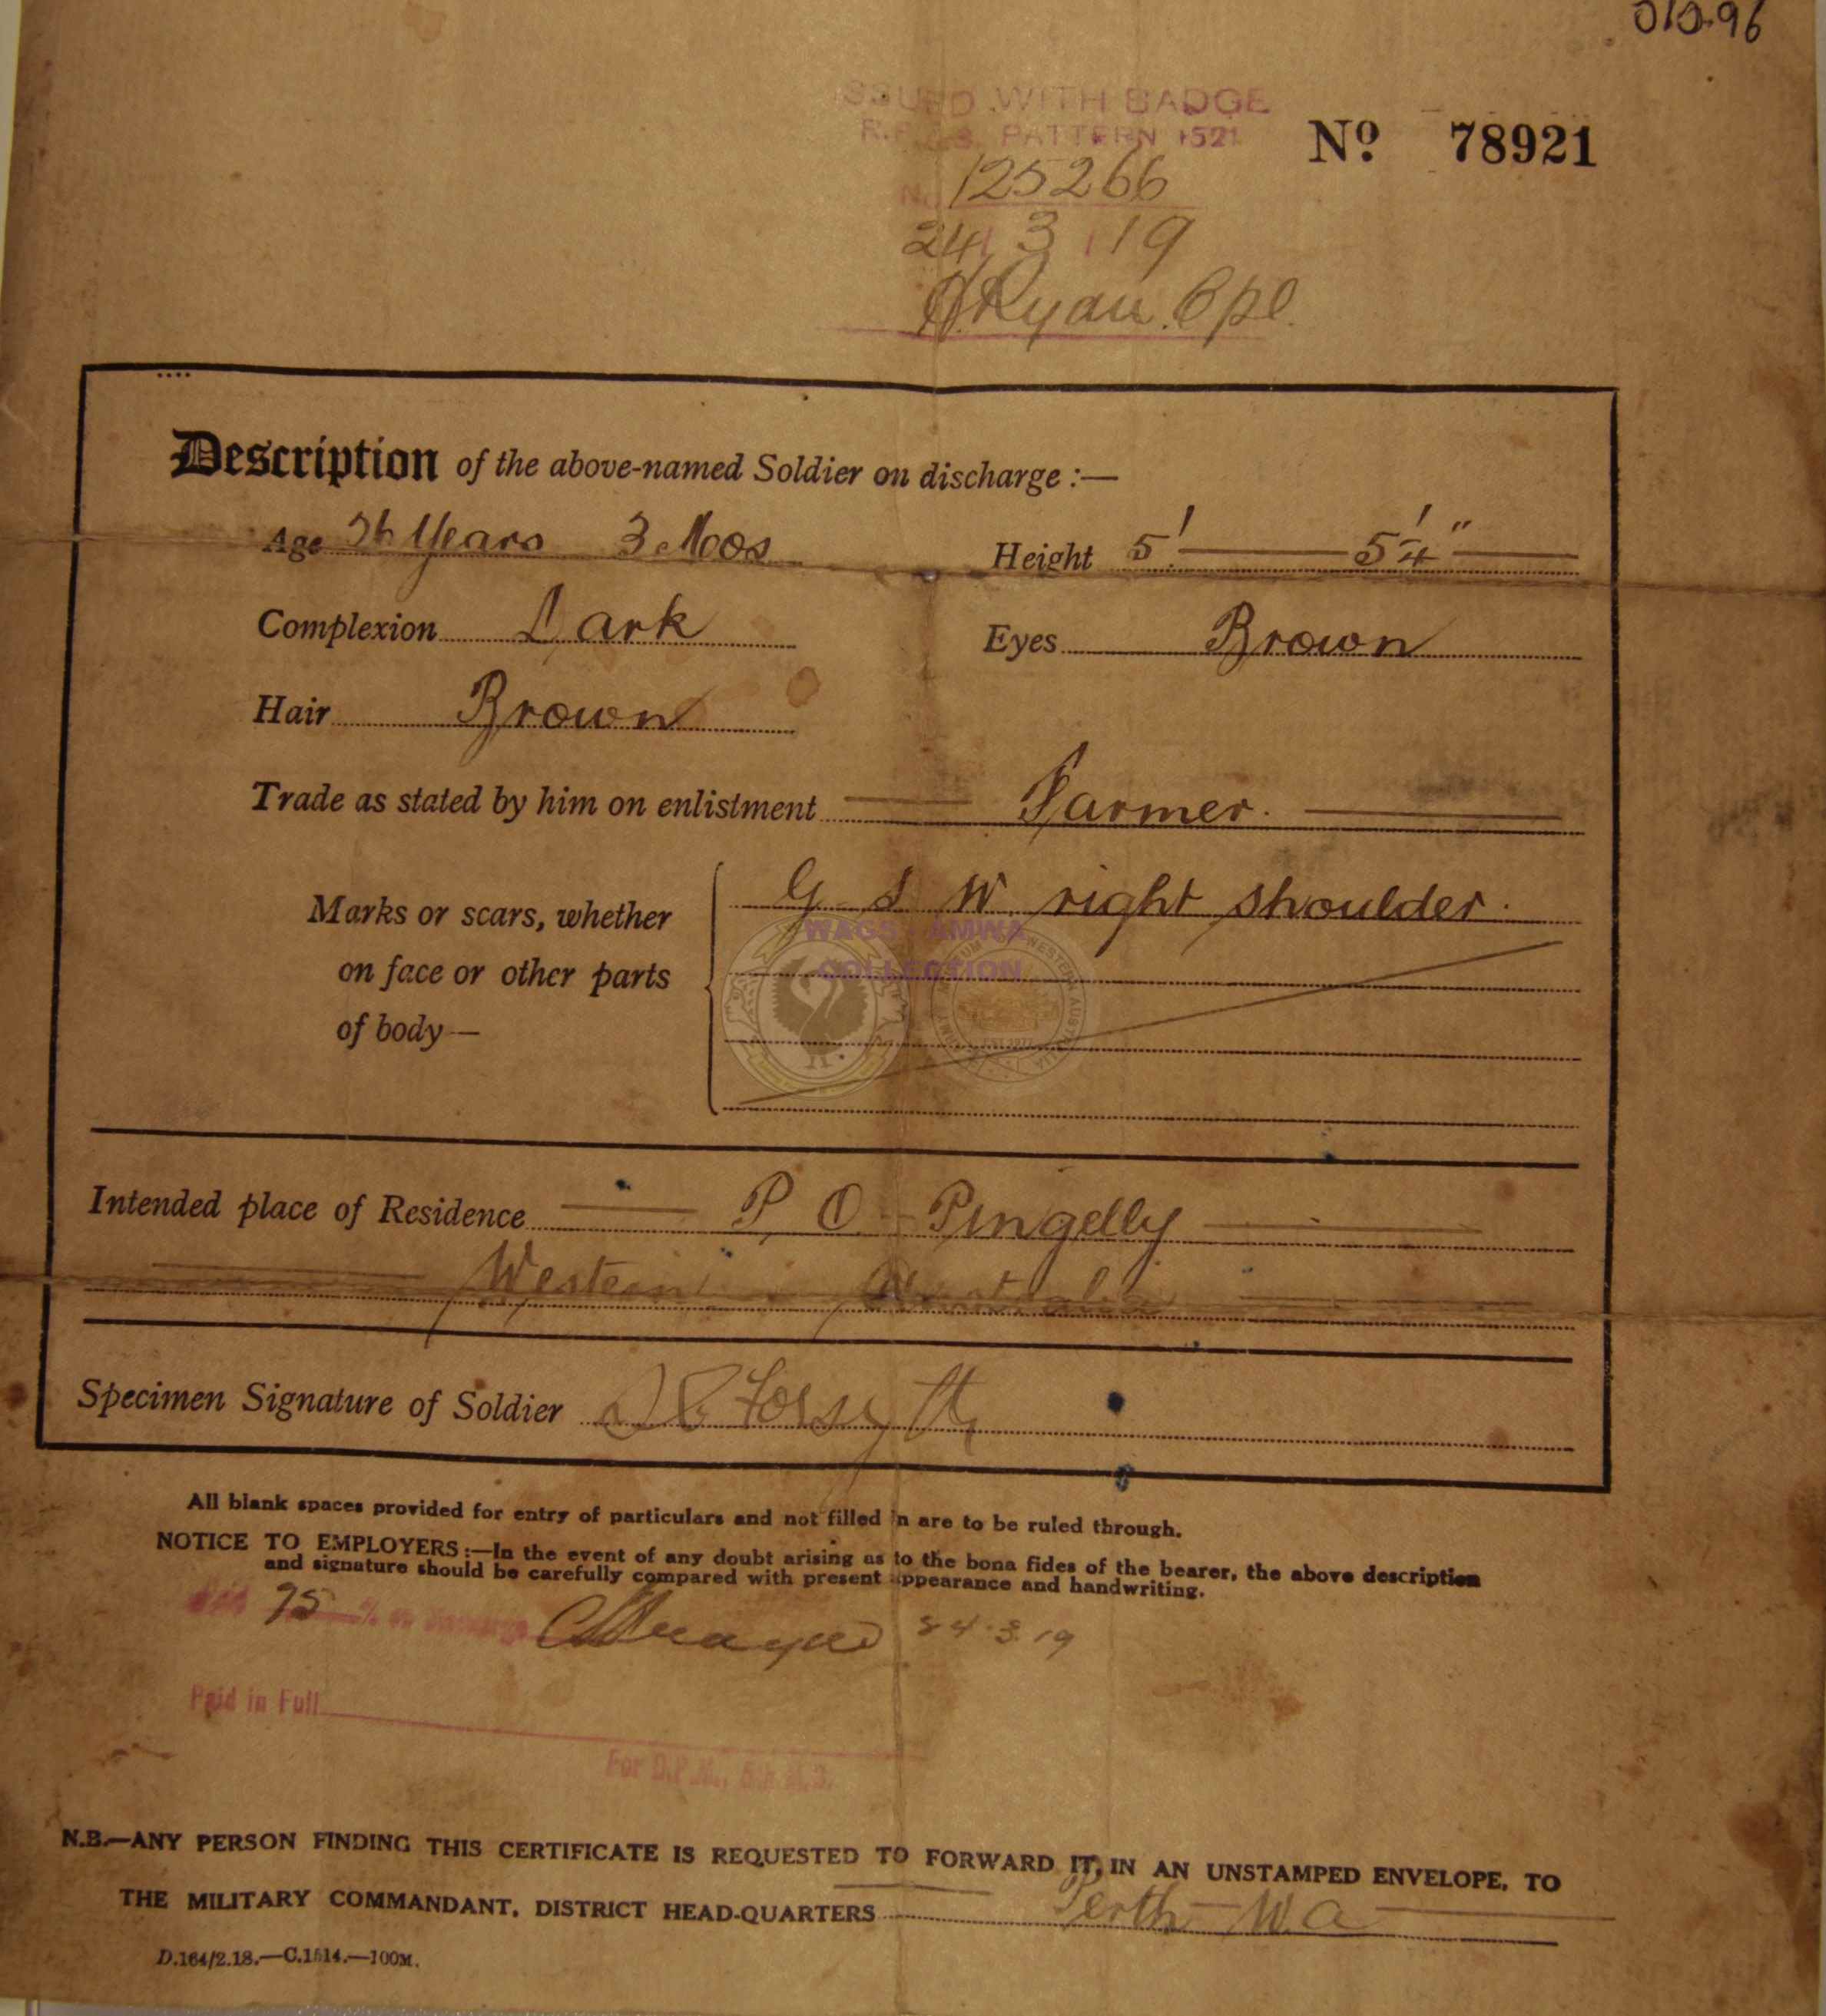 010-96
ISSUED WITH BADGE
PATTERN 1521
Nº 78921
No 125266
24 3 19
Ryan. Cpl.
Description of the above-named Soldier on discharge :—
Age 26 Years 3 Mos
Height 5' 5 1/4"
Complexion Dark
Eyes Brown
Hair Brown
Trade as stated by him on enlistment Farmer.
Marks or scars, whether on face or other parts of body—
G S W right shoulder.
WAGS - AMWA
COLLECTION
Intended place of Residence P O Pingelly
Western Australia
Specimen Signature of Soldier Forsyth
All blank spaces provided for entry of particulars and not filled in are to be ruled through.
NOTICE TO EMPLOYERS :—In the event of any doubt arising as to the bona fides of the bearer, the above description
and signature should be carefully compared with present appearance and handwriting.
75 %
24.3.19
Paid in Full
For D.P.M.,
N.B.—ANY PERSON FINDING THIS CERTIFICATE IS REQUESTED TO FORWARD IT, IN AN UNSTAMPED ENVELOPE, TO
THE MILITARY COMMANDANT, DISTRICT HEAD-QUARTERS Perth W.A
D.164/2.18.—C.1514.—100M.